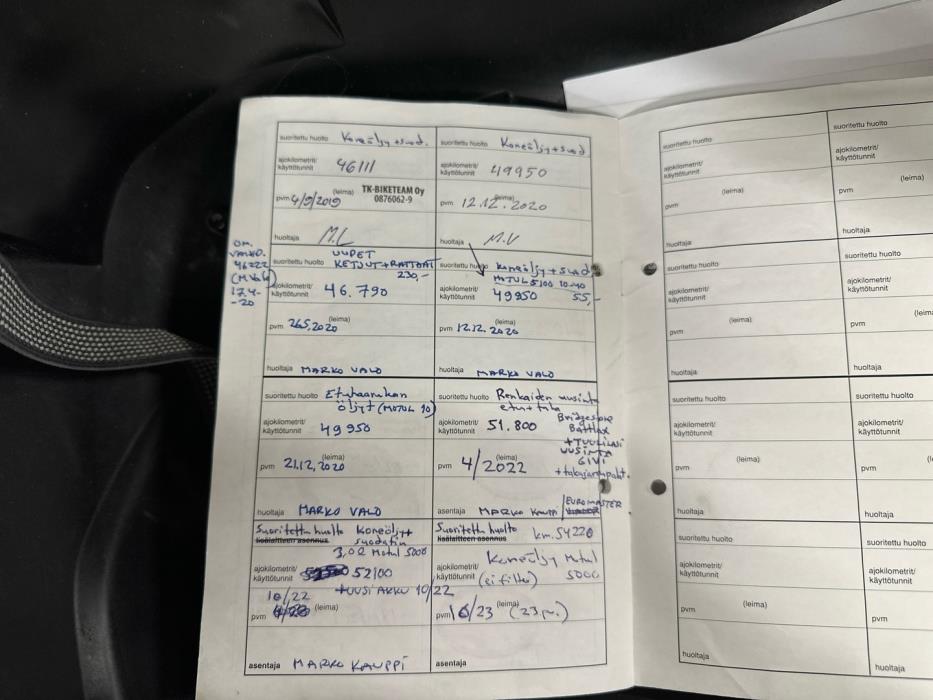 suoritettu huolto Koneöljy + suod.
ajokilometrit/
käyttötunnit 46111
(leima) TK-BIKETEAM Oy
0876062-9
pvm 4/9/2019
huoltaja
suoritettu huolto Koneöljy + suod
ajokilometrit/
käyttötunnit 49950
(leima)
pvm 12.12.2020
huoltaja M.V
46222
-20
UUDET
suoritettu huolto KETJUT + RATTAAT
230,-
ajokilometrit/
käyttötunnit 46.790
(leima)
pvm 26.5.2020
huoltaja MARKO VALO
suoritettu huolto Koneöljy + suod
MOTUL 5100 10-40
ajokilometrit/
käyttötunnit 49950 55,-
(leima)
pvm 12.12.2020
huoltaja MARKO VALO
suoritettu huolto Etuhaarukan
öljyt (MOTUL 10)
ajokilometrit/
käyttötunnit 49950
(leima)
pvm 21.12.2020
huoltaja MARKO VALO
suoritettu huolto Renkaiden uusinta
etu + taka
Bridgestone
Battlax
ajokilometrit/
käyttötunnit 51.800
+ TUULILASI
UUSINTA
GIVI
(leima)
pvm 4/2022
asentaja MARKO KAUPPI /EUROMASTER
Suoritettu huolto Koneöljy +
lisälaitteen asennus suodatin
3,0l Motul 5000
ajokilometrit/
käyttötunnit 52100
+ UUSI AKKU 10/22
10/22
pvm (leima)
asentaja MARKO KAUPPI
Suoritettu huolto km. 54220
lisälaitteen asennus
Koneöljy Motul
5000
ajokilometrit/
käyttötunnit (ei filtteri)
(leima)
pvm 6/23 (23 pv.)
asentaja
suoritettu huolto
ajokilometrit/
käyttötunnit
(leima)
pvm
huoltaja
suoritettu huolto
ajokilometrit/
käyttötunnit
(leima)
pvm
huoltaja
suoritettu huolto
ajokilometrit/
käyttötunnit
(leima)
pvm
huoltaja
suoritettu huolto
ajokilometrit/
käyttötunnit
(leima)
pvm
huoltaja
suoritettu huolto
ajokilometrit/
käyttötunnit
(leima)
pvm
huoltaja
suoritettu huolto
ajokilometrit/
käyttötunnit
(leima)
pvm
huoltaja
suoritettu huolto
ajokilometrit/
käyttötunnit
(leima)
pvm
huoltaja
suoritettu huolto
ajokilometrit/
käyttötunnit
pvm
huoltaja